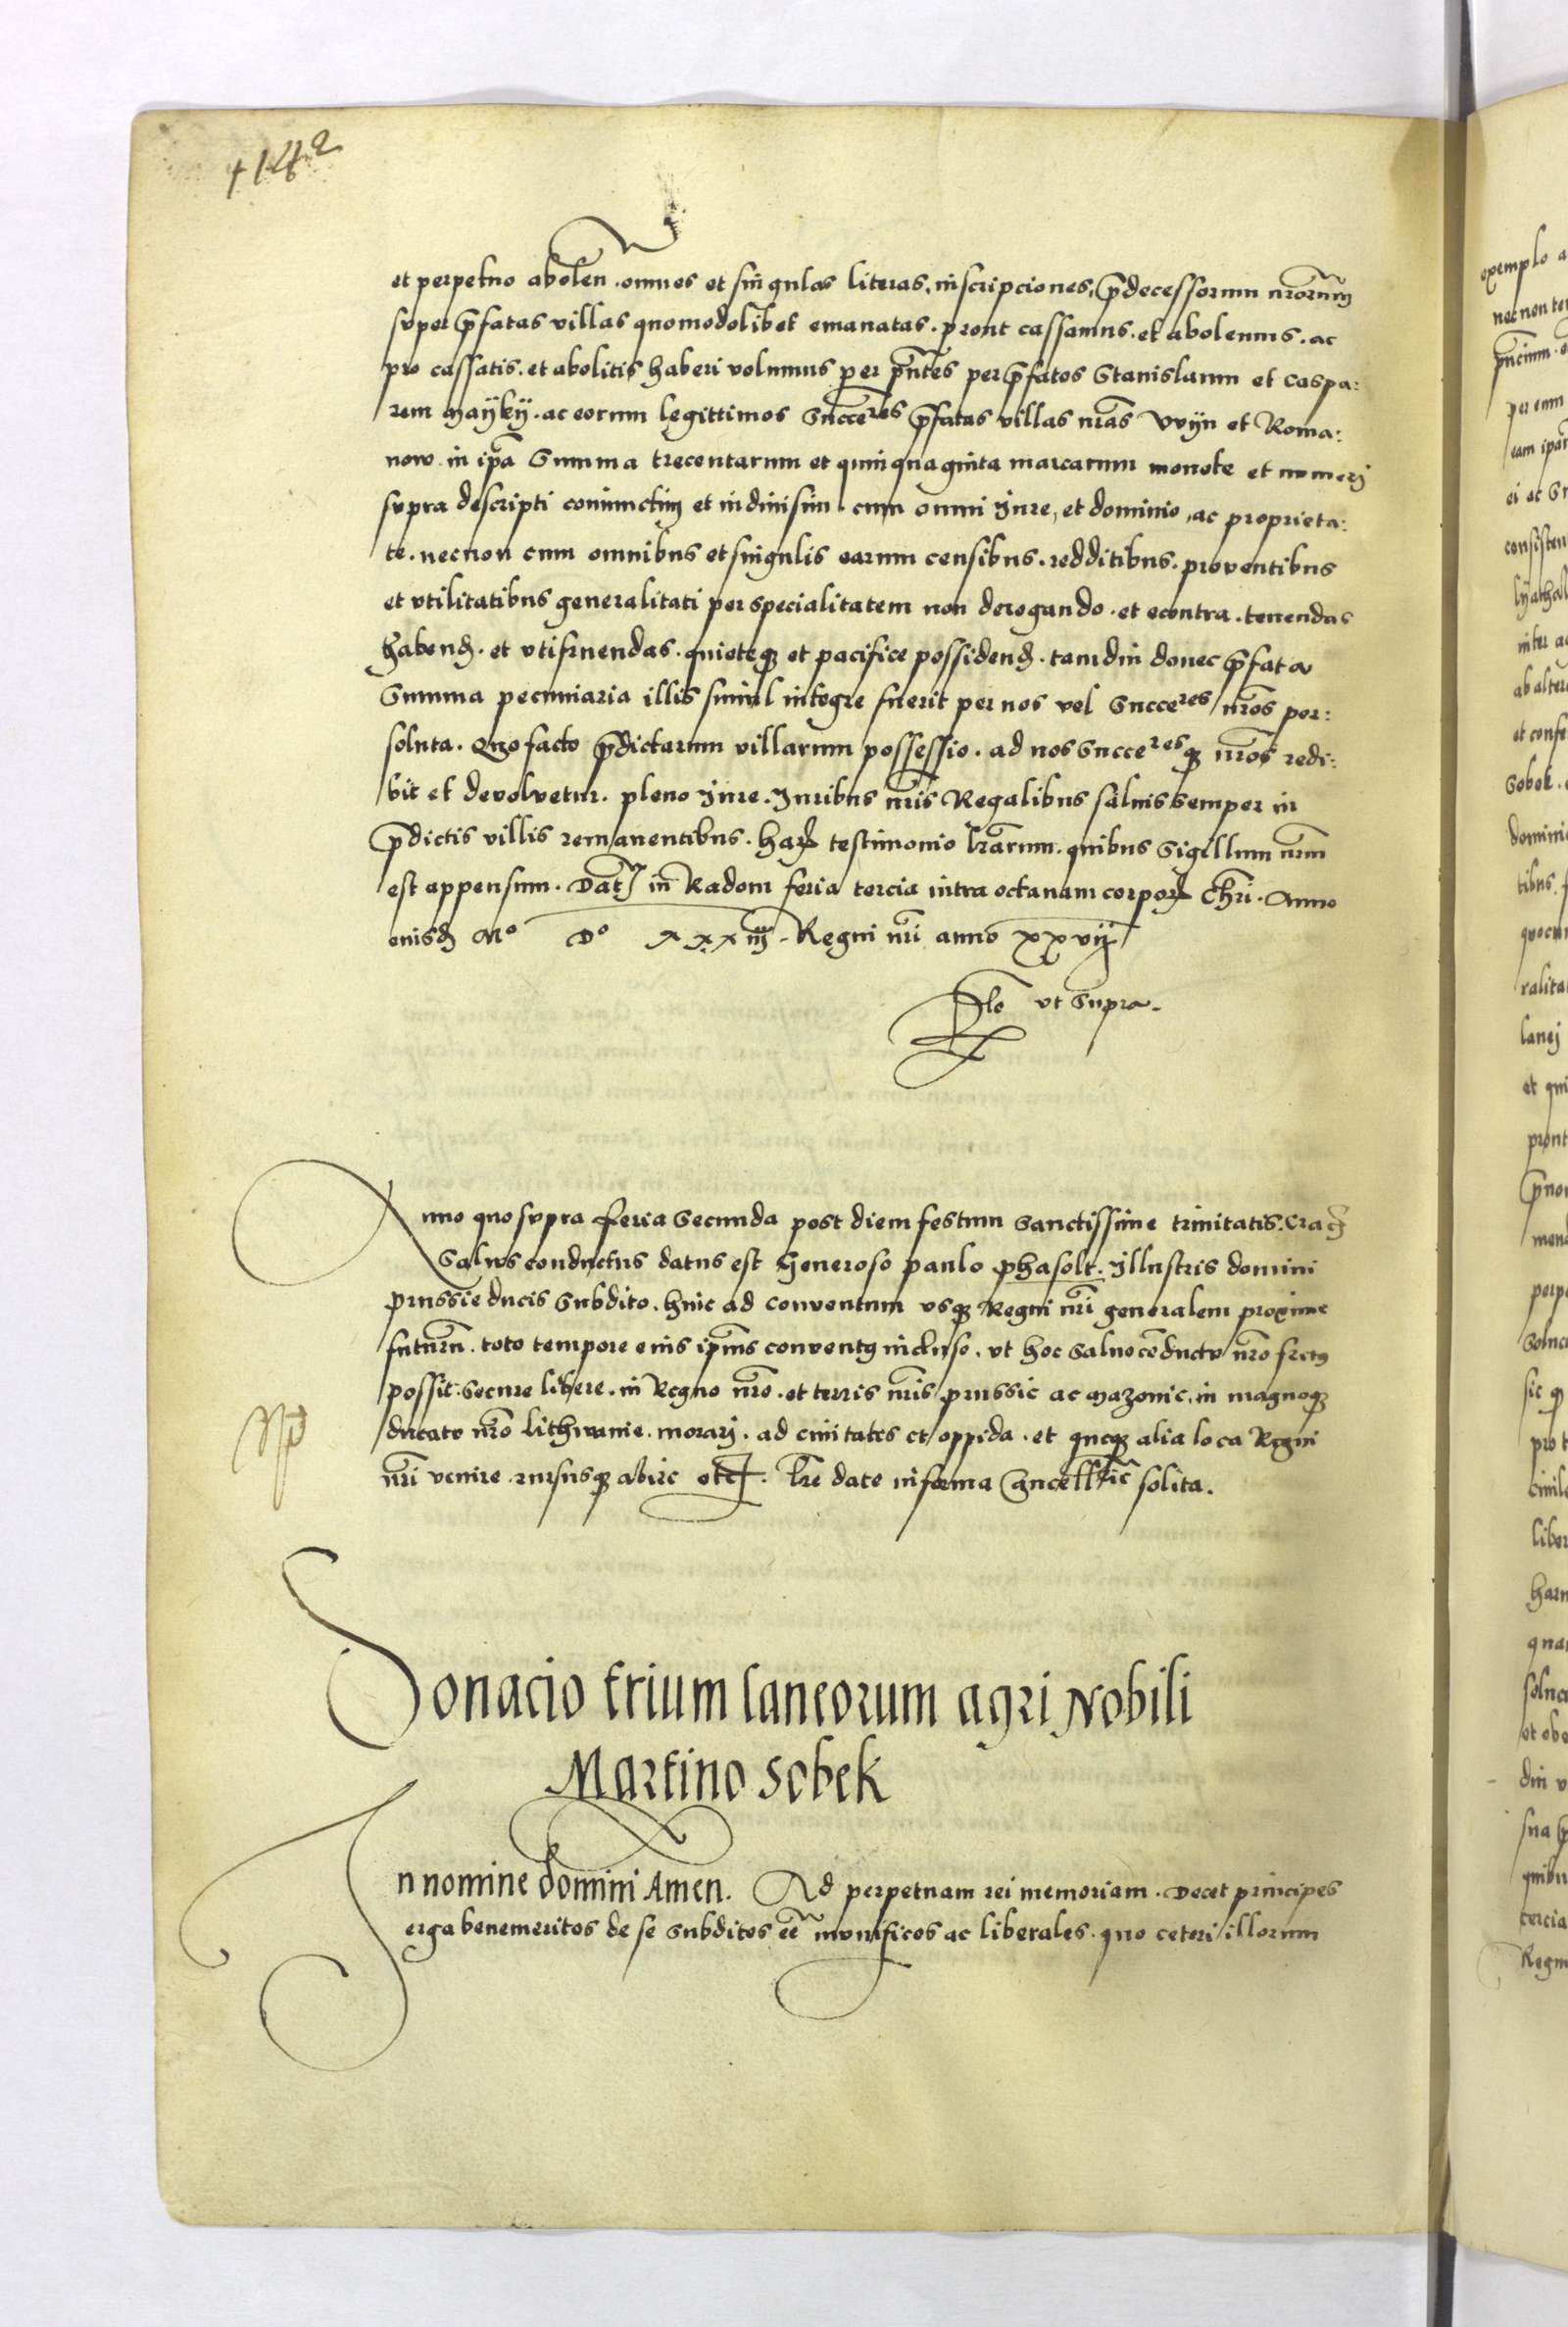 414 2
et perpetuo abolen̄. omnes et singulas literas. inscripciones, p̄decessorum nr̄orum
super p̄fatas villas quomodolibet emanatas. prout cassamus. et abolemus. ac
pro cassatis. et abolitis haberi volumus per p̄ntes per p̄fatos Stanislaum et Caspa:
rem Mayky. ac eorum legittimos Succeres p̄fatas villas nr̄as Vvyn et Roma:
now in ip̄a Summa trecentarum et quinquaginta marcarum monete et numerj
supra descripti coniunctim et indiuisim cum omni Iure, et dominio, ac proprieta:
te. necnon cum omnibus et singulis earum censibus. redditibus. proventibus
et vtilitatibus generalitati per specialitatem non derogando. et econtra. tenendas
habend. et vtifruendas. quieteq; et pacifice possidend. tamdiu donec p̄fata
Summa pecuniaria illis simul integre fuerit per nos vel Succeres nr̄os per:
soluta. Quo facto p̄dictarum villarum possessio. ad nos Succeresq; nr̄os redi:
bit et devolvetur. pleno Iure. Iuribus nr̄is Regalibus saluis semper in
p̄dictis villis remanentibus. Har testimonio lr̄arum. quibus Sigillum nr̄m
est appensum. Dat in Radom feria tercia intra octauam corpor Chr̄i. Anno
eiusd Mo Do xxxiij. Regni nr̄i anno xxvij
Rlo vt Supra.
Anno quo supra Feria Secunda post diem festum Sanctissime trinitatis. Crac
Saluus conductus datus est Generoso paulo phasolt. Illustris domini
prussie ducis Subdito. huic ad conventum vsq; Regni nr̄i generalem proxime
futurū. toto tempore eius ip̄ius conventus incluso. vt hoc Saluocōductu nr̄o fretus
possit. Secure libere. in Regno nr̄o. et terris nr̄is prussie ac Mazouie. in magnoq;
ducatu nr̄o Lithwanie. morarj. ad ciuitates et oppida. et queq; alia loca Regni
nr̄i venire rursusq; abire etc. Lr̄e date in forma Cancellrie solita.
Donacio trium laneorum agri Nobili
Martino Sobek
In nomine domini Amen. Ad perpetuam rei memoriam. Decet principes
erga benemeritos de se Subditos eē munificos ac liberales. quo ceteri illorum
exemplo
necnon
per eum
eam
consisten
inter
ab alter
et
Sobek.
domini
tibus.
ralita
lanej
prout
liber
tercia